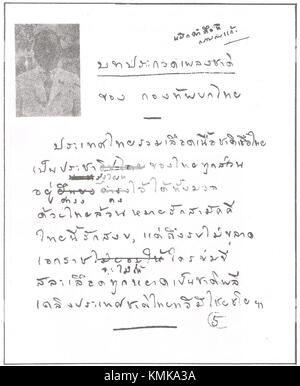 บทประกวดเพลงชาติ
ของ กองทัพบกไทย
ประเทศไทยรวมเลือดเนื้อชาติเชื้อไทย
เป็นประชา ของไทยทุกส่วน
อยู่ ดำรง ไว้ได้ทั้งมวล
ดำรง คง
ด้วยไทยล้วนหมายรักสามัคคี
ไทยนี้รักสงบ, แต่ถึงรบไม่ขลาด
เอกราชไม่ยอมให้ใครข่มขี่
จะไม่ให้
สละเลือดทุกหยาดเป็นชาติพลี
เถลิงประเทศชาติไทยทวีมีไชยชโย ๚
5
alamy
KMKA3A
www.alamy.com